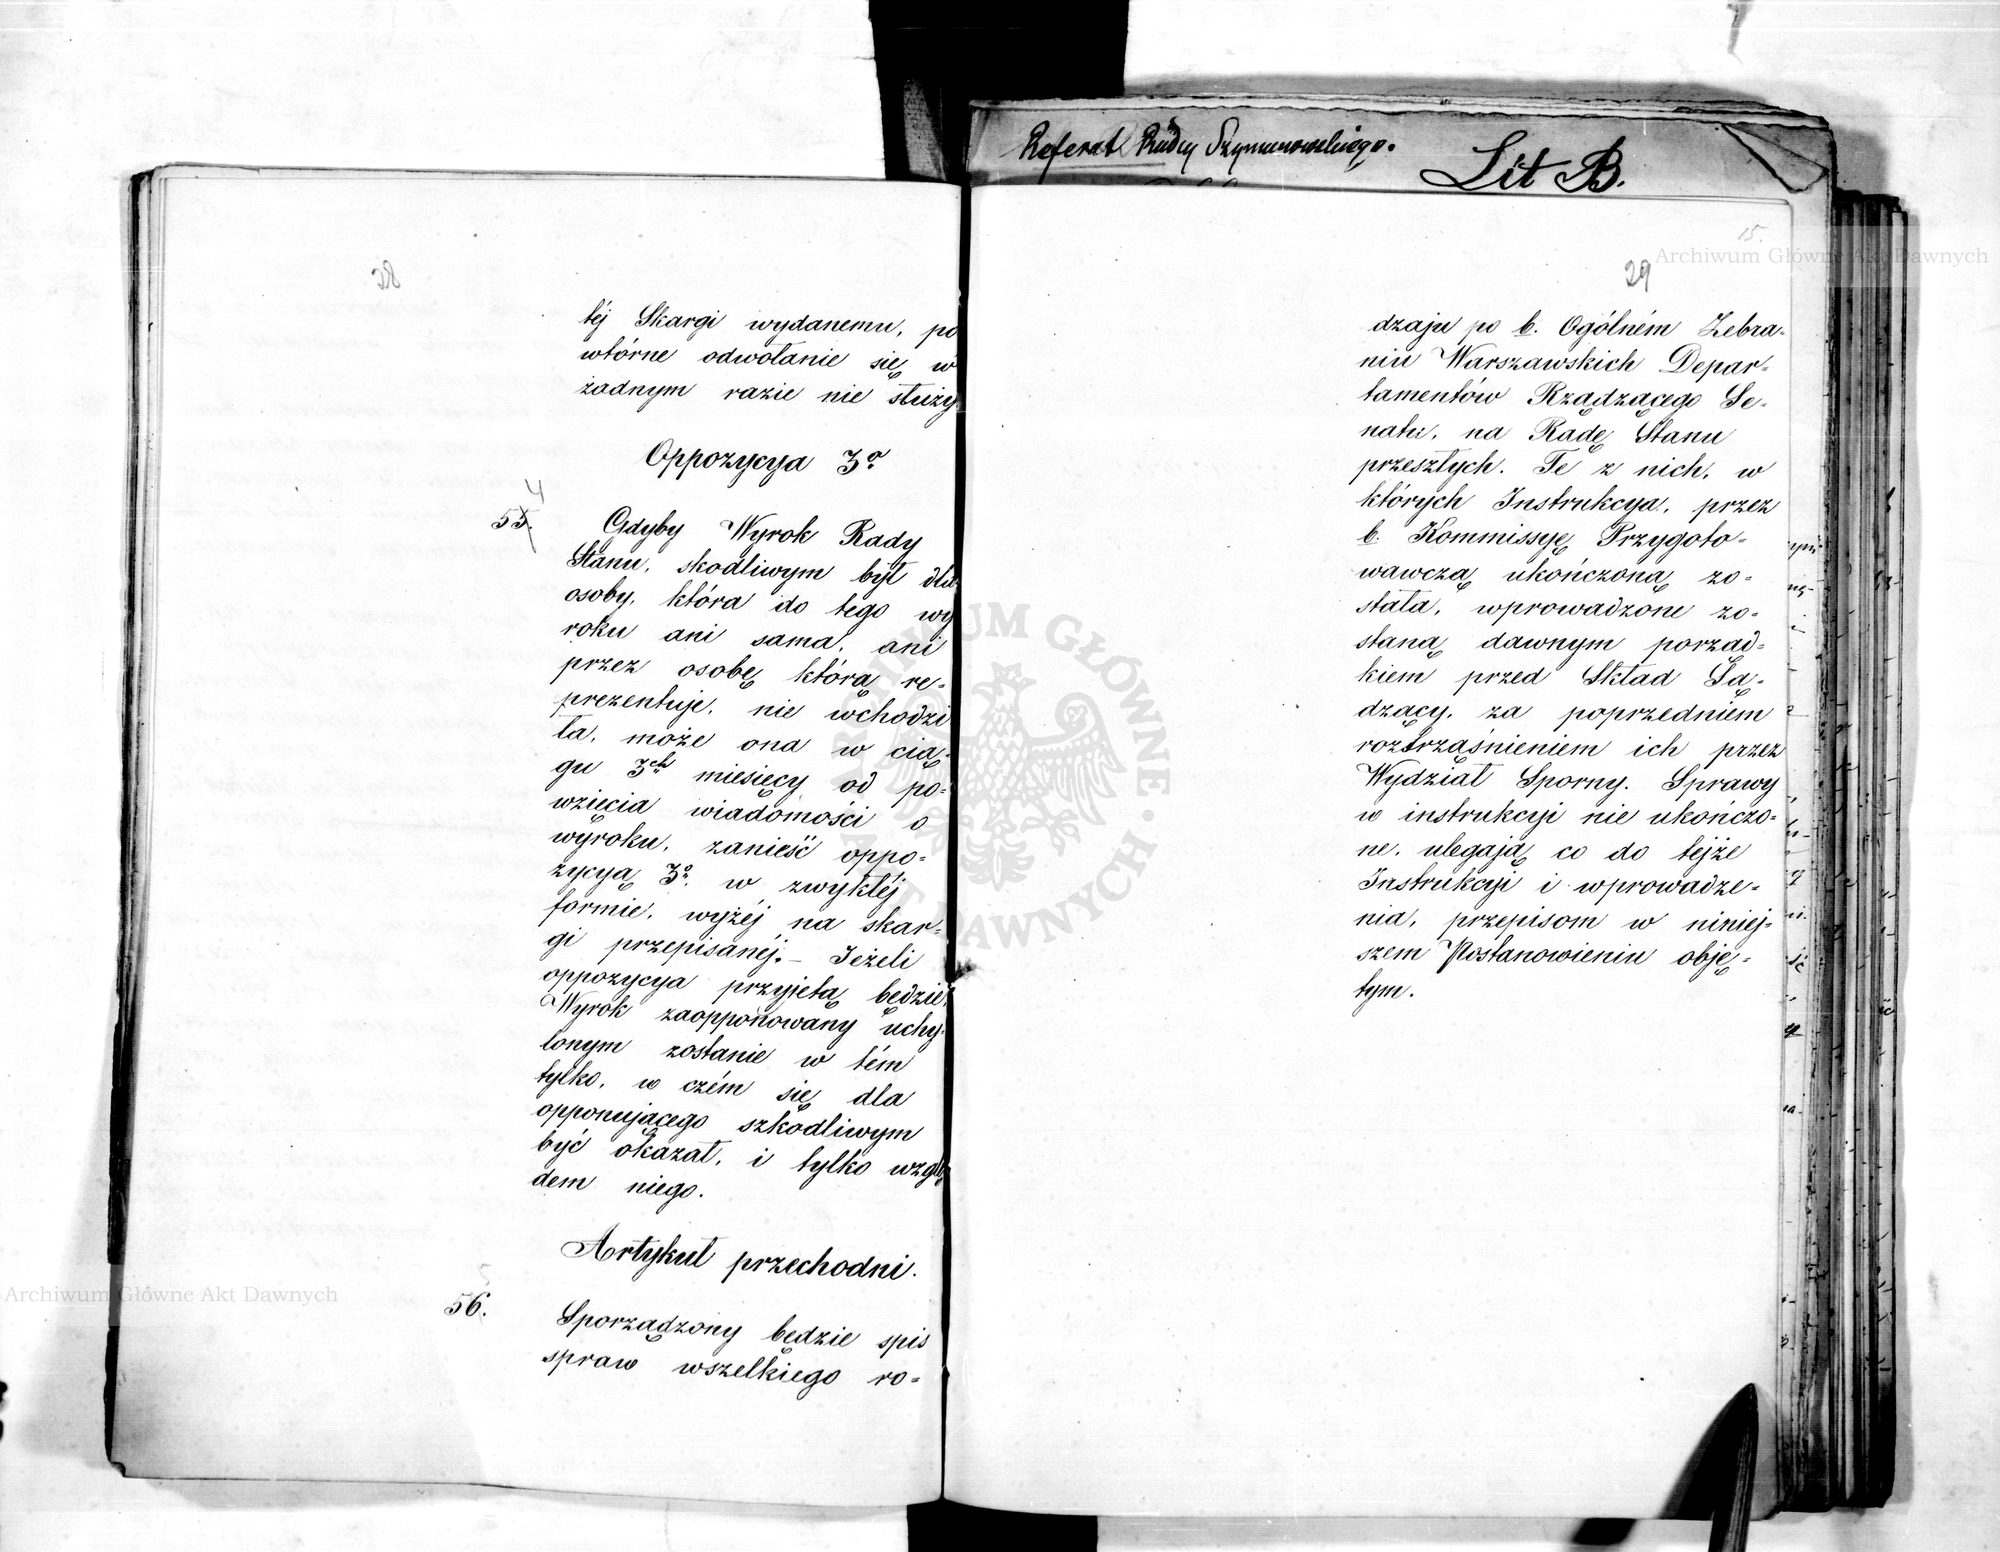 28
téj Skargi wydanemu, po
wtórne odwołanie się w
żadnym razie nie służy
Oppozycya 3º
4
55.
Gdyby Wyrok Rady
Stanu, skodliwym był dla
osoby, która do tego wy
roku ani sama, ani
przez osobę którą re-
prezentuje, nie wchodzi
ła, może ona w cią-
gu 3ch miesięcy od po-
wzięcia wiadomości o
wyroku, zanieść oppo-
zycyą 3º, w zwykłéj
formie, wyżéj na skar-
gi przepisanéj. – Jeżeli
oppozycya przyjętą będzie,
Wyrok zaopponowany uchy-
lonym zostanie w tém
tylko, w czém się dla
opponującego szkodliwym
być okazał, i tylko wzglę
dem niego.
Artykuł przechodni.
5
56.
Sporządzony będzie spis
spraw wszelkiego ro-
Referat Radcy Szymanowskiego.
Lit B.
15.
29
dzaju po b. Ogólném Zebra-
niu Warszawskich Depar-
tamentów Rządzącego Se-
natu, na Radę Stanu
przeszłych. Te z nich, w
których Instrukcya, przez
b. Kommissyę Przygoto-
wawczą ukończoną zo-
stała, wprowadzone zo-
staną dawnym porząd-
kiem przed Skład Są-
dzący, za poprzedniem
roztrząśnieniem ich przez
Wydział Sporny. Sprawy
w instrukcyi nie ukończo-
ne, ulegają co do tejże
Instrukcyi i wprowadze-
nia, przepisom w niniej-
szem Postanowieniu obję-
tym.
Archiwum Główne Akt Dawnych
Archiwum Główne Akt Dawnych
ARCHIWUM GŁÓWNE AKT DAWNYCH